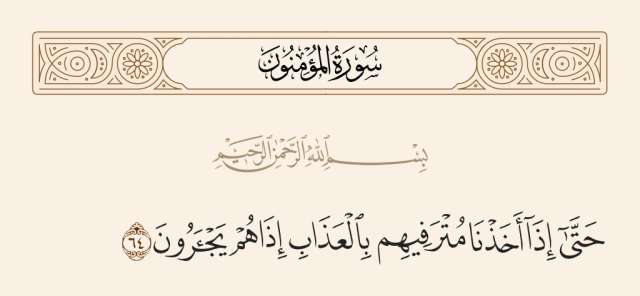 سُورَةُ الْمُؤْمِنُونَ
بِسْمِ اللَّهِ الرَّحْمَٰنِ الرَّحِيمِ
حَتَّىٰٓ إِذَآ أَخَذْنَا مُتْرَفِيهِم بِٱلْعَذَابِ إِذَا هُمْ يَجْـَٔرُونَ ٦٤